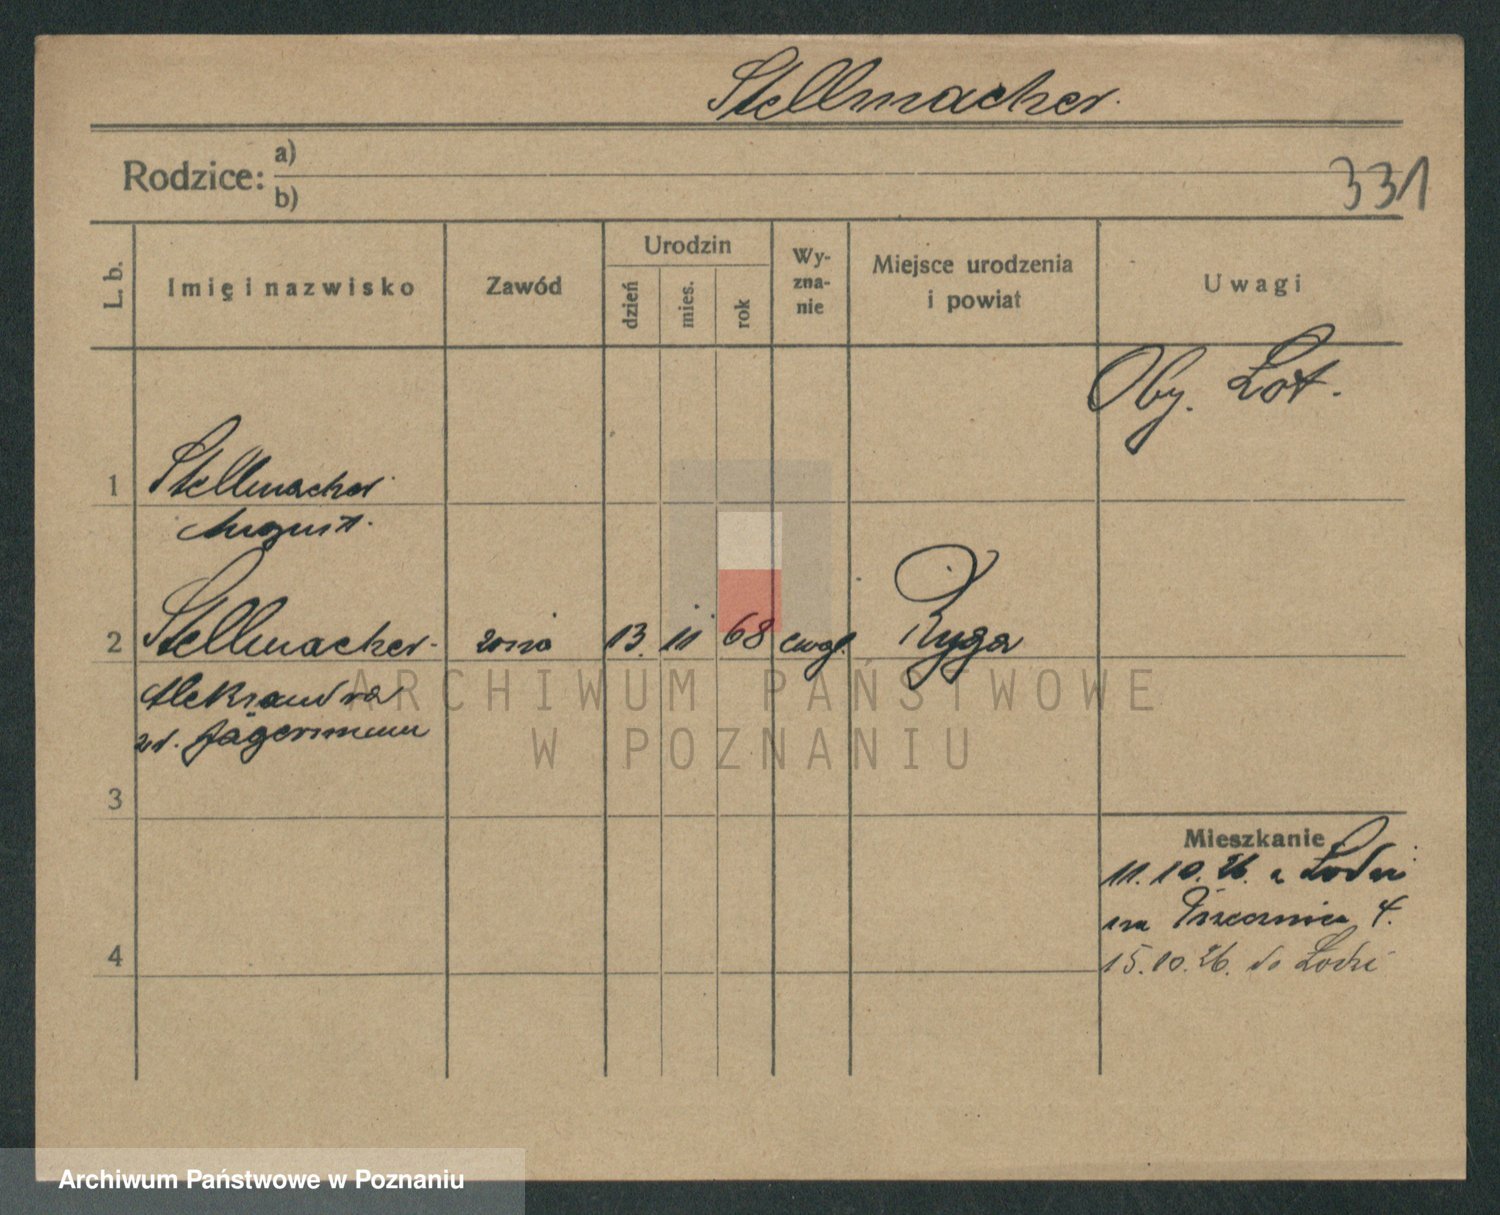 Stellmacher.
Rodzice: a)
b)
331
L. b.
Imię i nazwisko
Zawód
Urodzin
dzień
mies.
rok
Wy-
zna-
nie
Miejsce urodzenia
i powiat
Uwagi
Oby. Łot.
1 Stellmacher
August.
2 Stellmacher żona 13. 11 68 ewgl. Ryga
Aleksandra
Jägermann
3
Mieszkanie
11.10.26. z Łodzi
na 4.
4 15.10.26. do Łodzi
ARCHIWUM PAŃSTWOWE
W POZNANIU
Archiwum Państwowe w Poznaniu